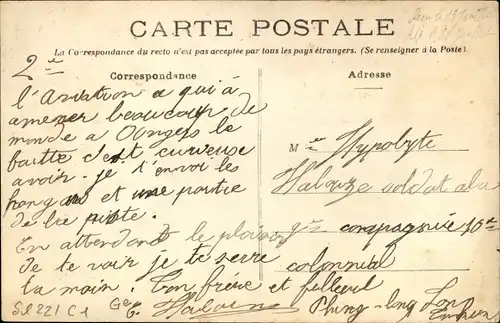 CARTE POSTALE
La Correspondance du recto n'est pas acceptée par tous les pays étrangers. (Se renseigner à la Poste).
Correspondance
Adresse
2e
l'Aviation a qui à
amener beaucoup de
monde a Angers le
faitte c'est curieuse
avoir. je t'envoi les
hangars et une partie
de la piste.
En attendant le plaisir
de te voir je te serre
la main. Ton frère et filleul
Mr Hypolyte
soldat a la
9e compagnie 10e
colonnial
Phung-long
S221 C1